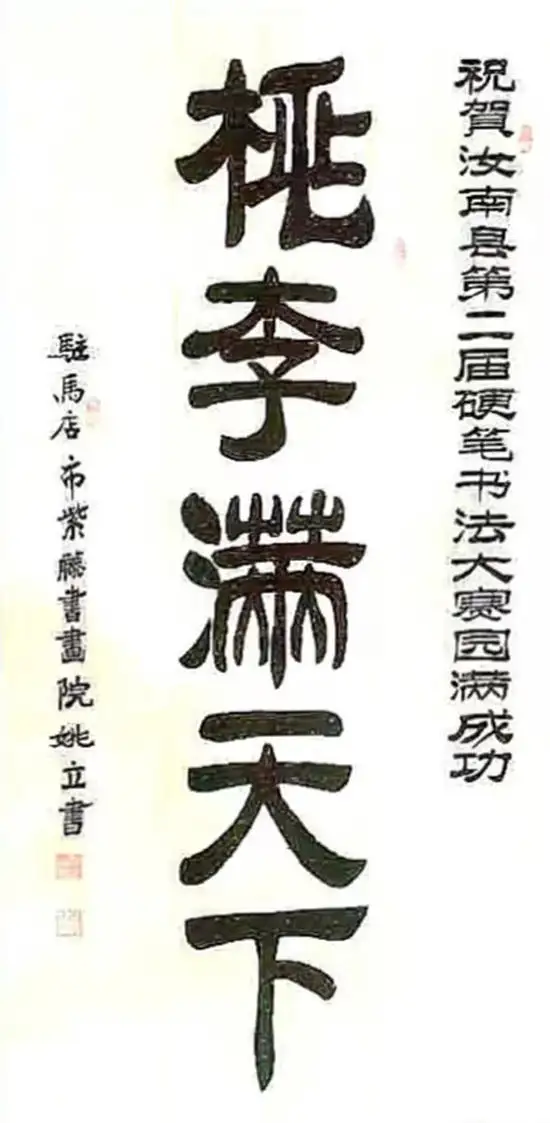 祝賀汝南县第二届硬笔书法大赛园满成功
桃李满天下
駐馬店市紫藤書畫院姚立書